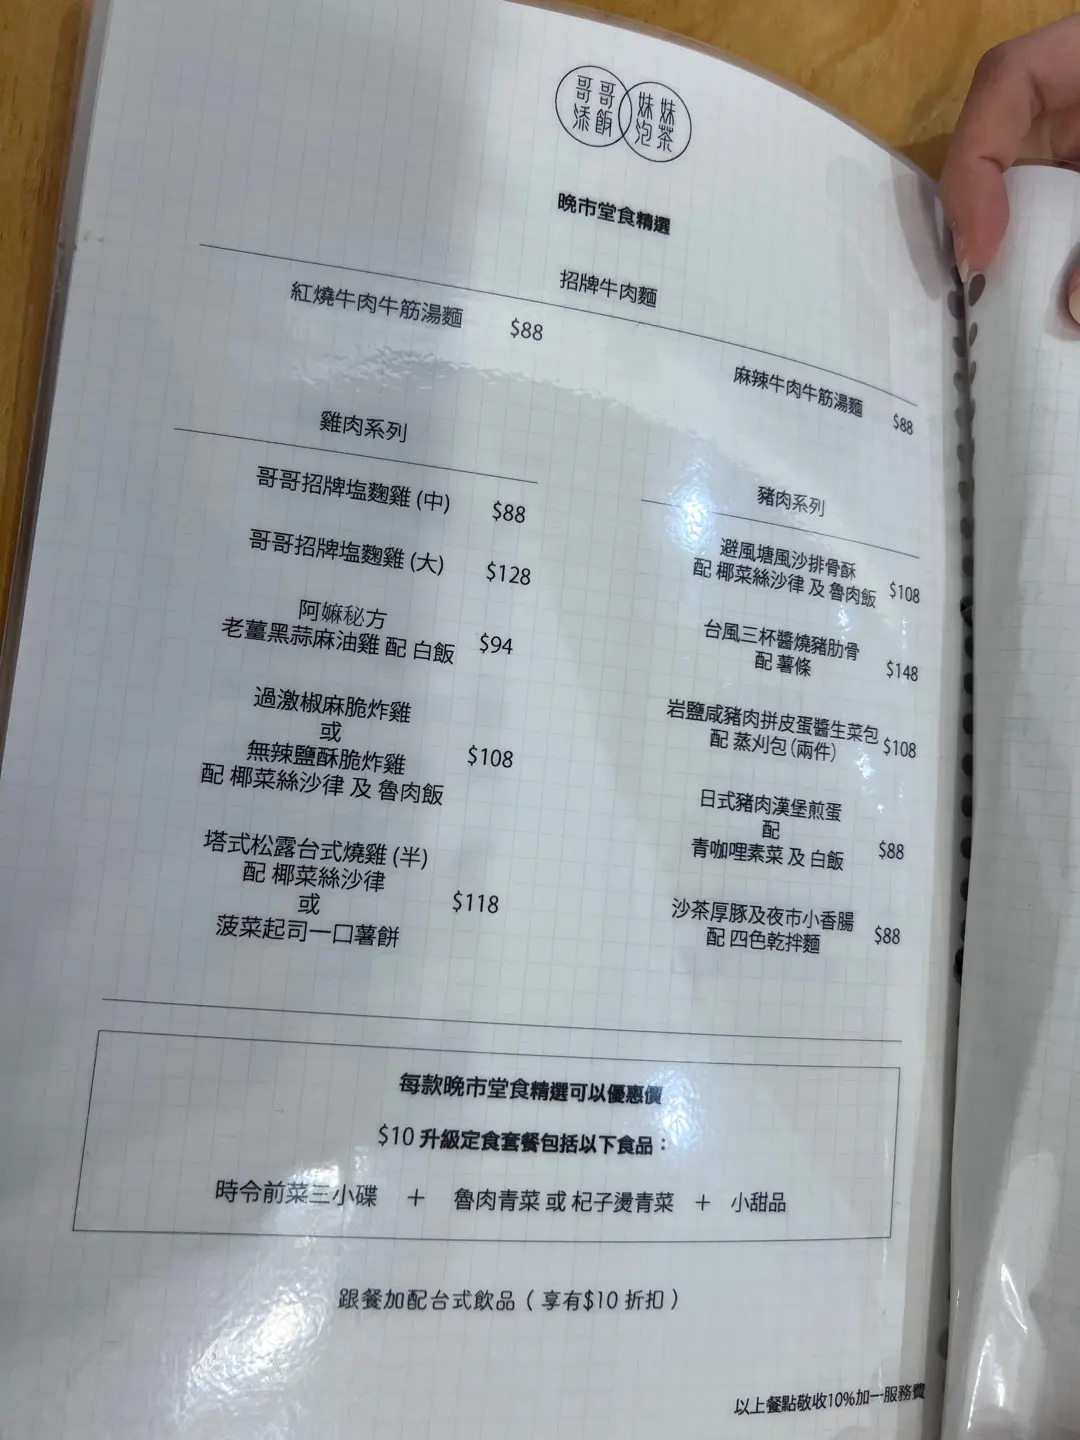 哥哥添飯
妹妹泡茶
晚市堂食精選
招牌牛肉麵
紅燒牛肉牛筋湯麵 $88
麻辣牛肉牛筋湯麵 $88
雞肉系列
哥哥招牌塩麴雞 (中) $88
哥哥招牌塩麴雞 (大) $128
阿嫲秘方
老薑黑蒜麻油雞 配 白飯 $94
過激椒麻脆炸雞
或
無辣鹽酥脆炸雞 $108
配 椰菜絲沙律 及 魯肉飯
塔式松露台式燒雞 (半)
配 椰菜絲沙律
或 $118
菠菜起司一口薯餅
豬肉系列
避風塘風沙排骨酥
配 椰菜絲沙律 及 魯肉飯 $108
台風三杯醬燒豬肋骨
配 薯條 $148
岩鹽咸豬肉拼皮蛋醬生菜包
配 蒸刈包 (兩件) $108
日式豬肉漢堡煎蛋
配
青咖哩素菜 及 白飯 $88
沙茶厚豚及夜市小香腸
配 四色乾拌麵 $88
每款晚市堂食精選可以優惠價
$10 升級定食套餐包括以下食品：
時令前菜三小碟 + 魯肉青菜 或 杞子燙青菜 + 小甜品
跟餐加配台式飲品（享有$10 折扣）
以上餐點敬收10%加一服務費